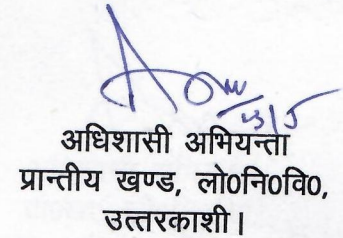 23/5
अधिशासी अभियन्ता
प्रान्तीय खण्ड, लो०नि०वि०,
उत्तरकाशी।